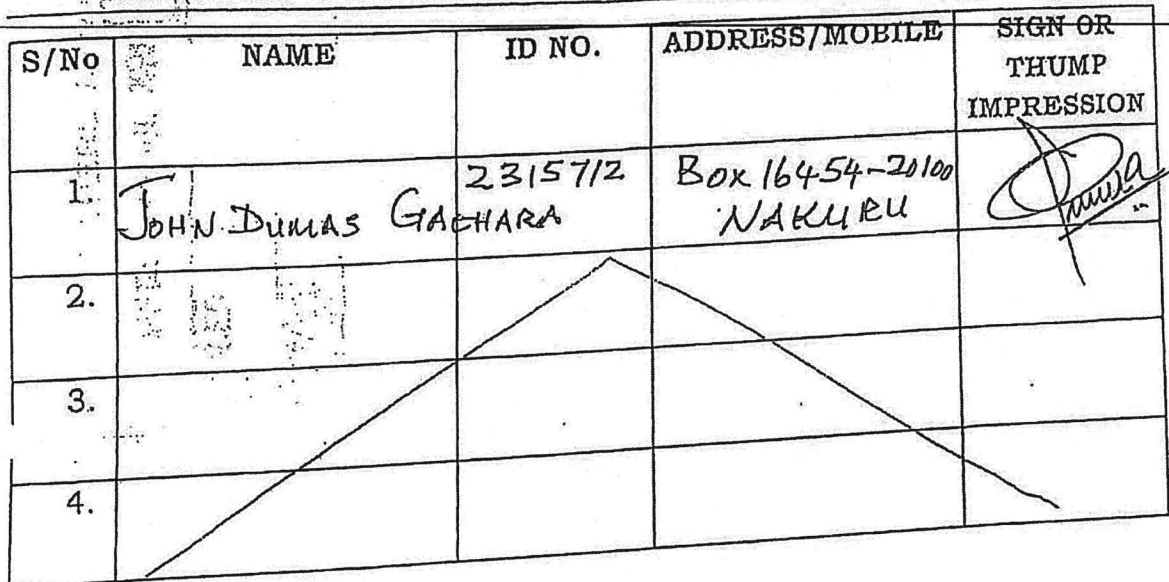 S/No NAME ID NO. ADDRESS/MOBILE SIGN OR
THUMP
IMPRESSION
1. JOHN DUMAS GACHARA 2315712 Box 16454-20100
NAKURU
2.
3.
4.